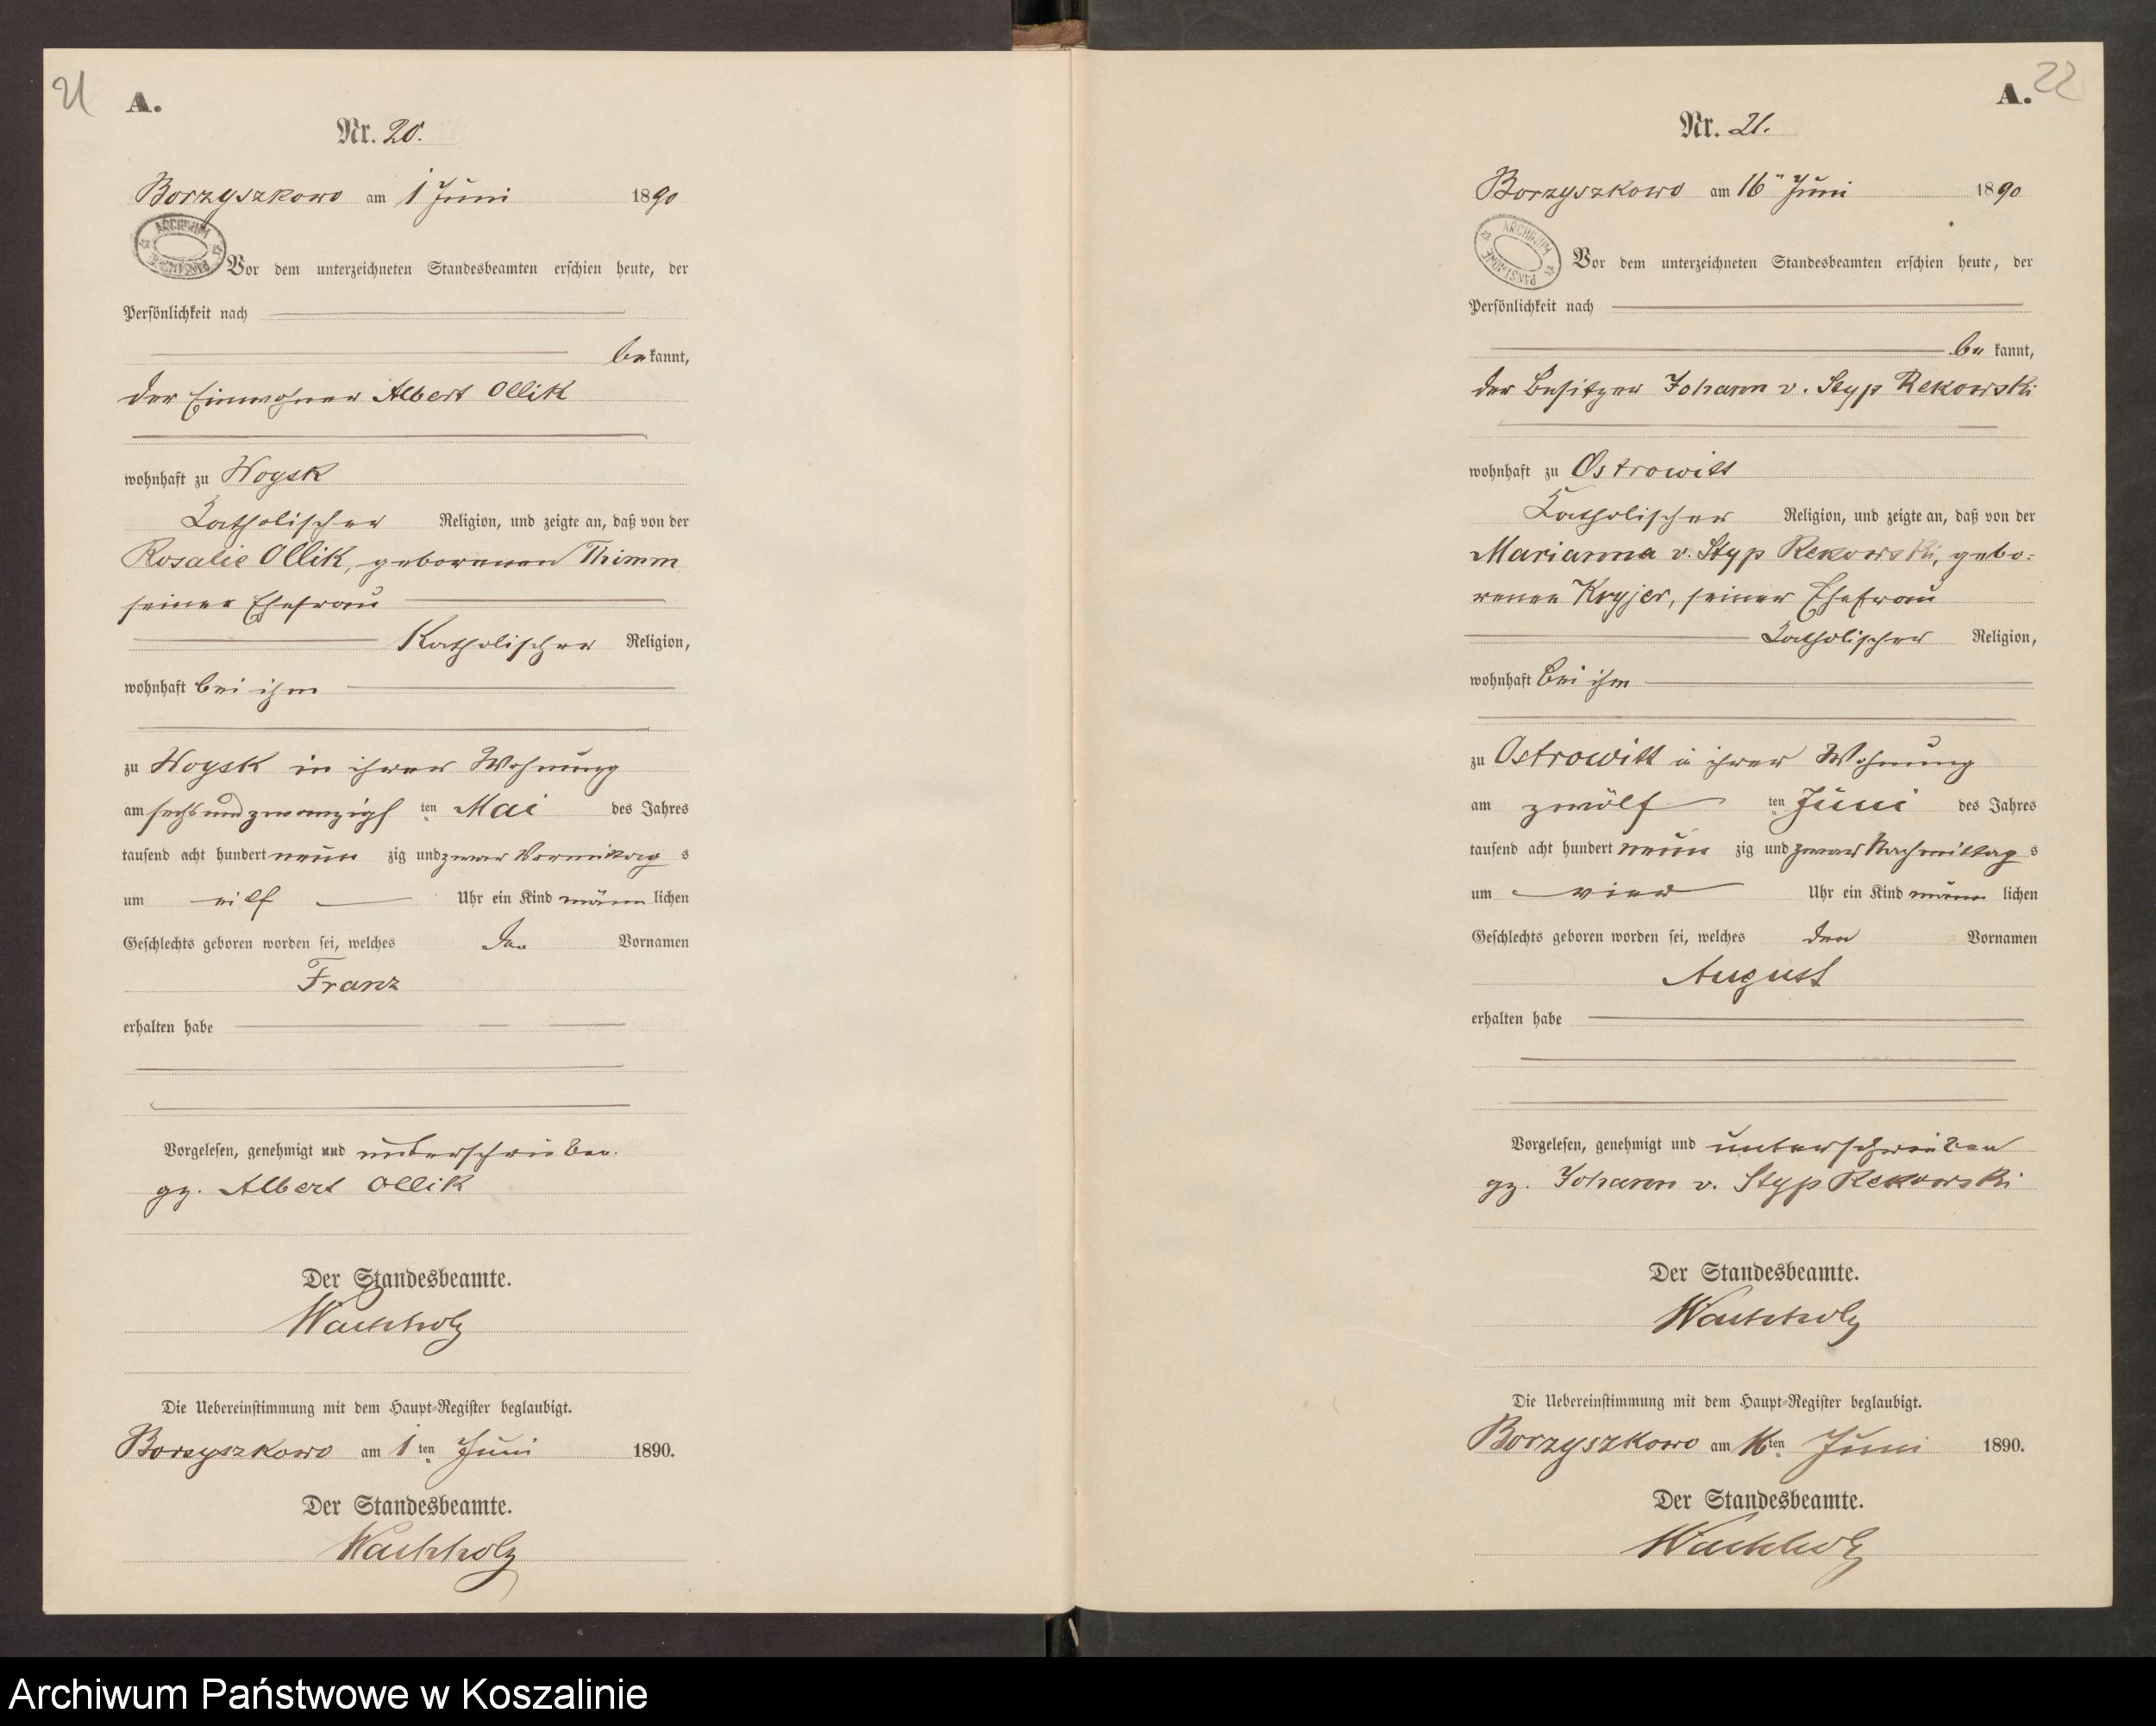 21
A.
Nr. 20.
Borzyszkowo am 1 Juni 1890
ARCHIWUM PAŃSTWOWE
Vor dem unterzeichneten Standesbeamten erschien heute, der
Persönlichkeit nach
be kannt,
der Einwohner Albert Ollik
wohnhaft zu Wogsk
katholischer Religion, und zeigte an, daß von der
Rosalie Ollik, geborenen Thimm
seiner Ehefrau
Katholischer Religion,
wohnhaft bei ihm
zu Wogsk in ihrer Wohnung
am sechsundzwanzigs ten Mai des Jahres
tausend acht hundert neun zig und zwar Vormittag s
um eilf Uhr ein Kind männ lichen
Geschlechts geboren worden sei, welches den Vornamen
Franz
erhalten habe
Vorgelesen, genehmigt und unterschrieben.
gz. Albert Ollik
Der Standesbeamte.
Wachholz
Die Uebereinstimmung mit dem Haupt-Register beglaubigt.
Borzyszkowo am 1 ten Juni 1890.
Der Standesbeamte.
Wachholz
22
A.
Nr. 21.
Borzyszkowo am 16" Juni 1890
ARCHIWUM PAŃSTWOWE
Vor dem unterzeichneten Standesbeamten erschien heute, der
Persönlichkeit nach
be kannt,
der Besitzer Johann v. Styp Rekowski
wohnhaft zu Ostrowitt
katholischer Religion, und zeigte an, daß von der
Marianna v. Styp Rekowski, gebo=
renen Kryjer, seiner Ehefrau
katholischer Religion,
wohnhaft bei ihm
zu Ostrowitt in ihrer Wohnung
am zwölf ten Juni des Jahres
tausend acht hundert neun zig und zwar Nachmittag s
um vier Uhr ein Kind männ lichen
Geschlechts geboren worden sei, welches den Vornamen
August
erhalten habe
Vorgelesen, genehmigt und unterschrieben
gz. Johann v. Styp Rekowski
Der Standesbeamte.
Wachholz
Die Uebereinstimmung mit dem Haupt-Register beglaubigt.
Borzyszkowo am 16 ten Juni 1890.
Der Standesbeamte.
Wachholz
Archiwum Państwowe w Koszalinie